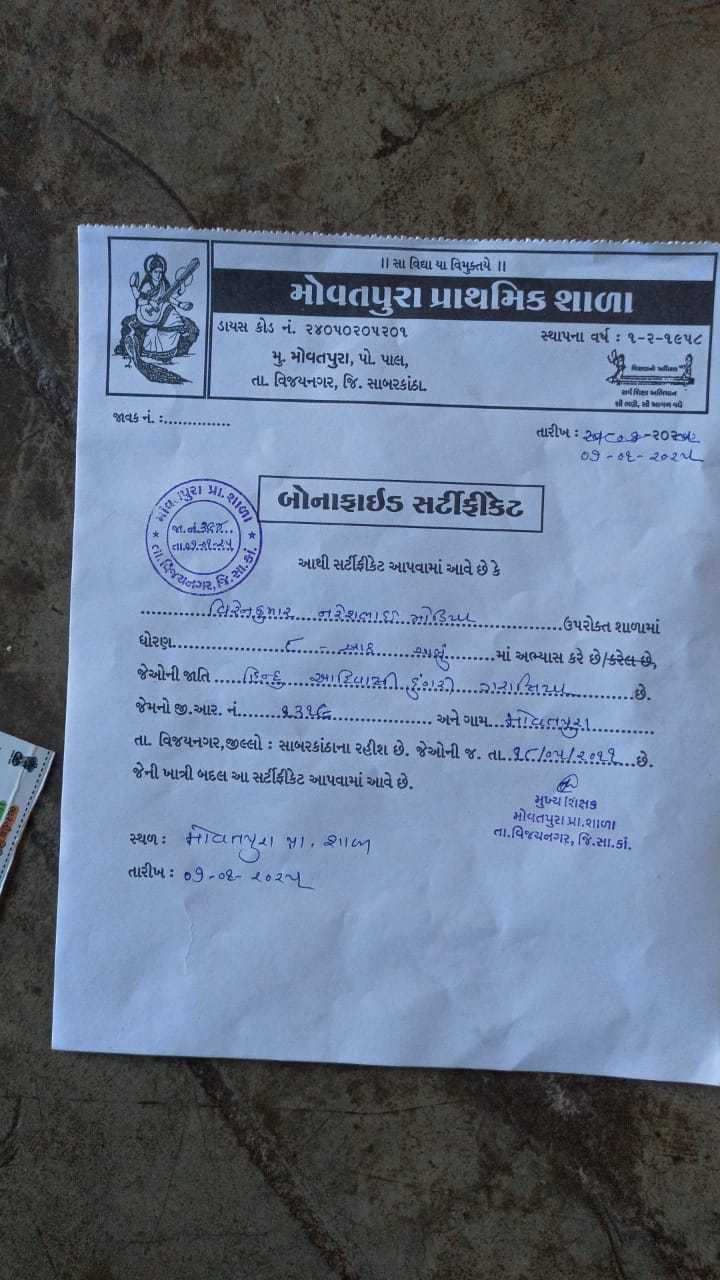 || સા વિદ્યા યા વિમુક્તયે ||
મોવતપુરા પ્રાથમિક શાળા
ડાયસ કોડ નં. ૨૪૦૫૦૨૦૫૨૦૧
સ્થાપના વર્ષ : ૧-૨-૧૯૫૮
મુ. મોવતપુરા, પો. પાલ,
તા. વિજયનગર, જિ. સાબરકાંઠા.
સર્વ શિક્ષા અભિયાન
સૌ ભણે, સૌ આગળ વધે
જાવક નં. :..............
તારીખ :
૦૭-૦૬-૨૦૨૫
બોનાફાઈડ સર્ટીફીકેટ
પ્રા. શાળા
જા.નં.
તા.વિજયનગર, જિ.સા.કાં.
આથી સર્ટીફીકેટ આપવામાં આવે છે કે
નરેશભાઈ મોડિયા ઉપરોક્ત શાળામાં
ધોરણ ૮ - આઠ માં અભ્યાસ કરે છે/કરેલ છે,
જેઓની જાતિ હિન્દુ આદિવાસી ડુંગરી ગરાસિયા છે.
જેમનો જી.આર. નં. અને ગામ મોવતપુરા
તા. વિજયનગર,જીલ્લો : સાબરકાંઠાના રહીશ છે. જેઓની જ. તા. ૧૮/૦૫/૨૦૧૧ છે.
જેની ખાત્રી બદલ આ સર્ટીફીકેટ આપવામાં આવે છે.
મુખ્ય શિક્ષક
મોવતપુરા પ્રા.શાળા
તા.વિજયનગર, જિ.સા.કાં.
સ્થળ : મોવતપુરા પ્રા. શાળા
તારીખ : ૦૭-૦૬-૨૦૨૫